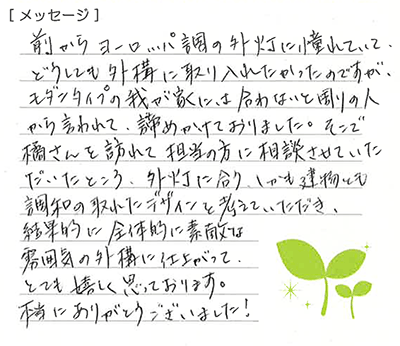 [メッセージ]
前からヨーロッパ調の外灯に憧れていて、
どうしても外構に取り入れたかったのですが、
モダンタイプの我が家には合わないと周りの人
から言われて、諦めかけておりました。そこで
橘さんを訪れて担当の方に相談させていた
だいたところ、外灯に合り、しかも建物とも
調和の取れたデザインを考えていただき、
結果的に全体的に素敵な
雰囲気の外構に仕上がって、
とても嬉しく思っております。
本当にありがとうございました!